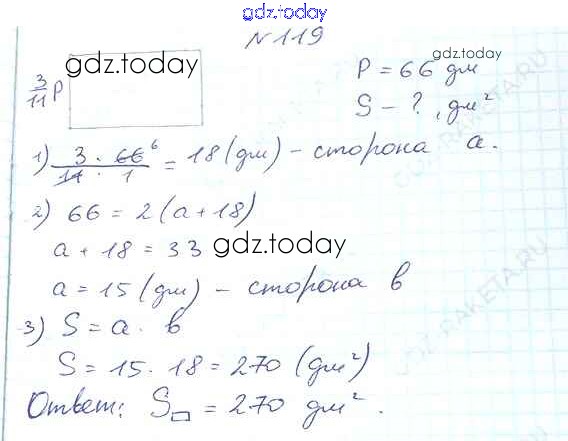 gdz.today
№119
gdz.today
gdz.today
3/11 P
P = 66 дм
S – ?, дм²
1) 3 · 66⁶ / 11 · 1 = 18 (дм) – сторона a.
2) 66 = 2(a + 18)
a + 18 = 33
gdz.today
a = 15 (дм) – сторона в
3) S = a · в
S = 15 · 18 = 270 (дм²)
Ответ: S▭ = 270 дм².
GDZ-RAKETA.RU
GDZ-RAKETA.RU